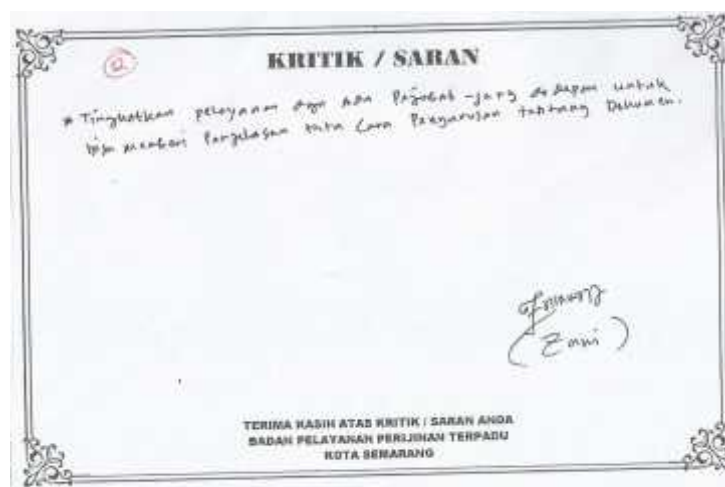 2
KRITIK / SARAN
* Tingkatkan pelayanan dgn ada Pejabat yang di depan untuk
bisa memberi Penjelasan tata Cara Pengurusan tentang Dokumen.
(Zaini)
TERIMA KASIH ATAS KRITIK / SARAN ANDA
BADAN PELAYANAN PERIJINAN TERPADU
KOTA SEMARANG